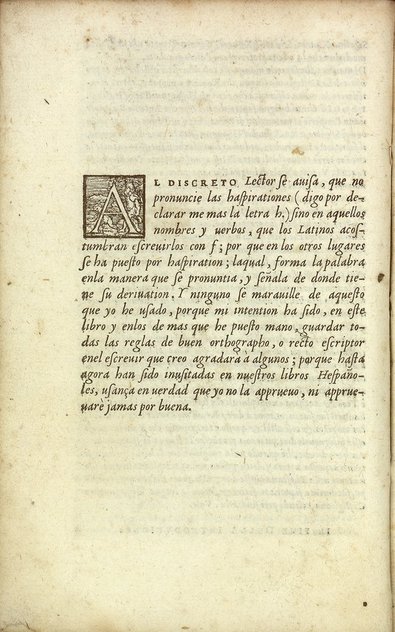 AL DISCRETO Lector se auisa, que no
pronuncie las haspirationes (digo por de-
clarar me mas la letra h.) sino en aquellos
nombres y uerbos, que los Latinos acos-
tumbran escreuirlos con f; por que en los otros lugares
se ha puesto por haspiration; laqual, forma la palabra
enla manera que se pronuntia, y señala de donde tie-
ne su deriuation, I ninguno se marauille de aquesto
que yo he usado, porque mi intention ha sido, en este
libro y enlos de mas que he puesto mano, guardar to-
das las reglas de buen orthographo, o recto escriptor
enel escreuir que creo agradarà à algunos; porque hasta
agora han sido inusitadas en nuestros libros Hespaño-
les, usança en verdad que yo no la apprueuo, ni apprue-
uarè jamas por buena.